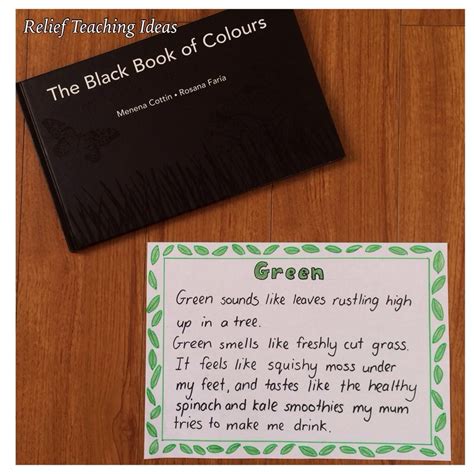 Relief Teaching Ideas
The Black Book of Colours
Menena Cottin • Rosana Faria
Green
Green sounds like leaves rustling high
up in a tree.
Green smells like freshly cut grass.
It feels like squishy moss under
my feet, and tastes like the healthy
spinach and kale smoothies my mum
tries to make me drink.